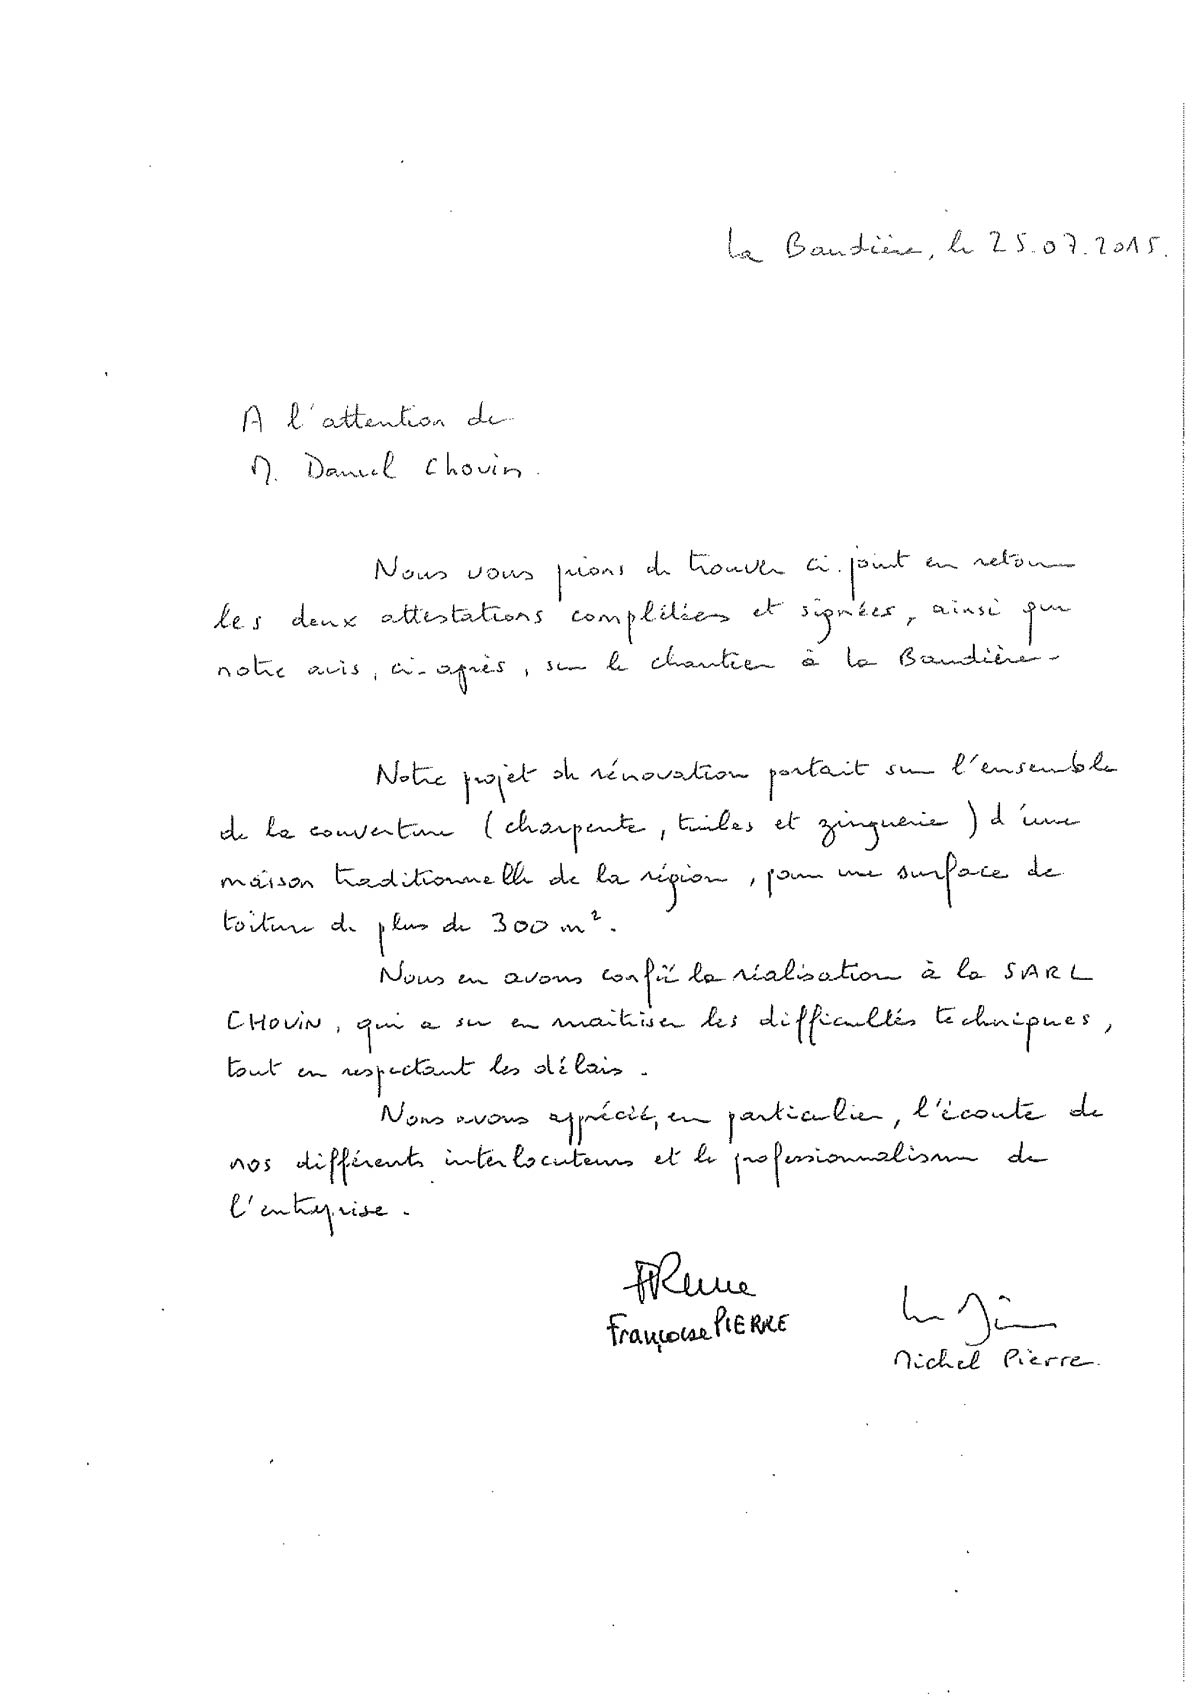 La Baudière, le 25.07.2015.
A l'attention de
M. Daniel Chovin.
Nous vous prions de trouver ci-joint en retour
les deux attestations complétées et signées, ainsi que
notre avis, ci-après, sur le chantier à la Baudière.
Notre projet de rénovation portait sur l'ensemble
de la couverture (charpente, tuiles et zinguerie) d'une
maison traditionnelle de la région, pour une surface de
toiture de plus de 300 m².
Nous en avons confié la réalisation à la SARL
CHOVIN, qui a su en maîtriser les difficultés techniques,
tout en respectant les délais.
Nous avons apprécié, en particulier, l'écoute de
nos différents interlocuteurs et le professionnalisme de
l'entreprise.
Françoise PIERRE
Michel Pierre.